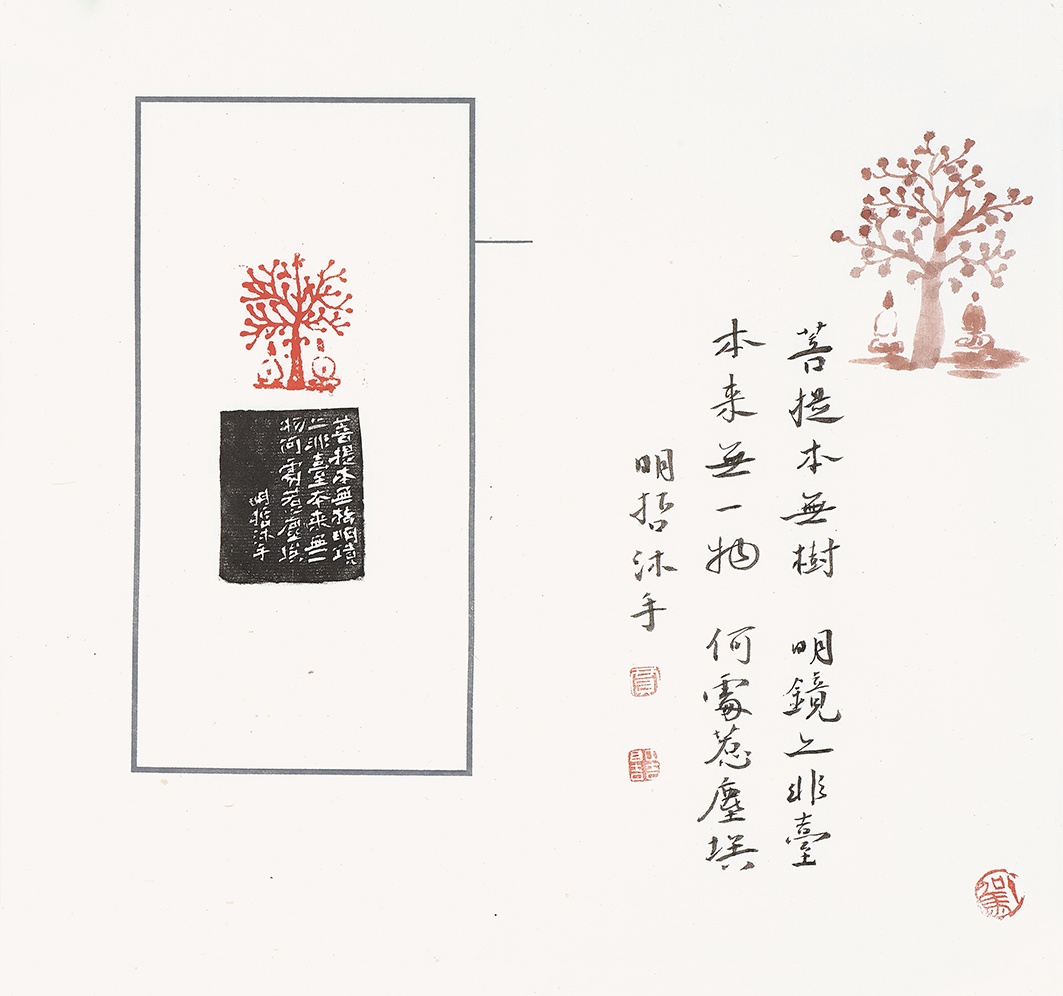 菩提本無樹 明鏡亦非臺
本来無一物 何處惹塵埃
明哲沐手
菩提本無樹明鏡
亦非臺本来無一
物何處惹塵埃
明哲沐手